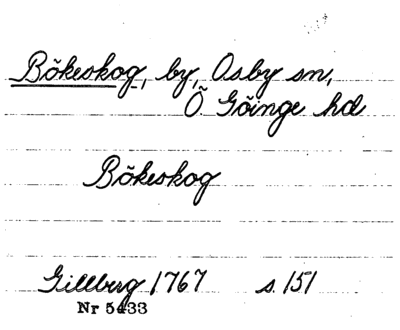 Bökeskog, by, Osby sn,
Ö. Göinge hd
Bökeskog
Gillberg 1767 s. 151
Nr 5433